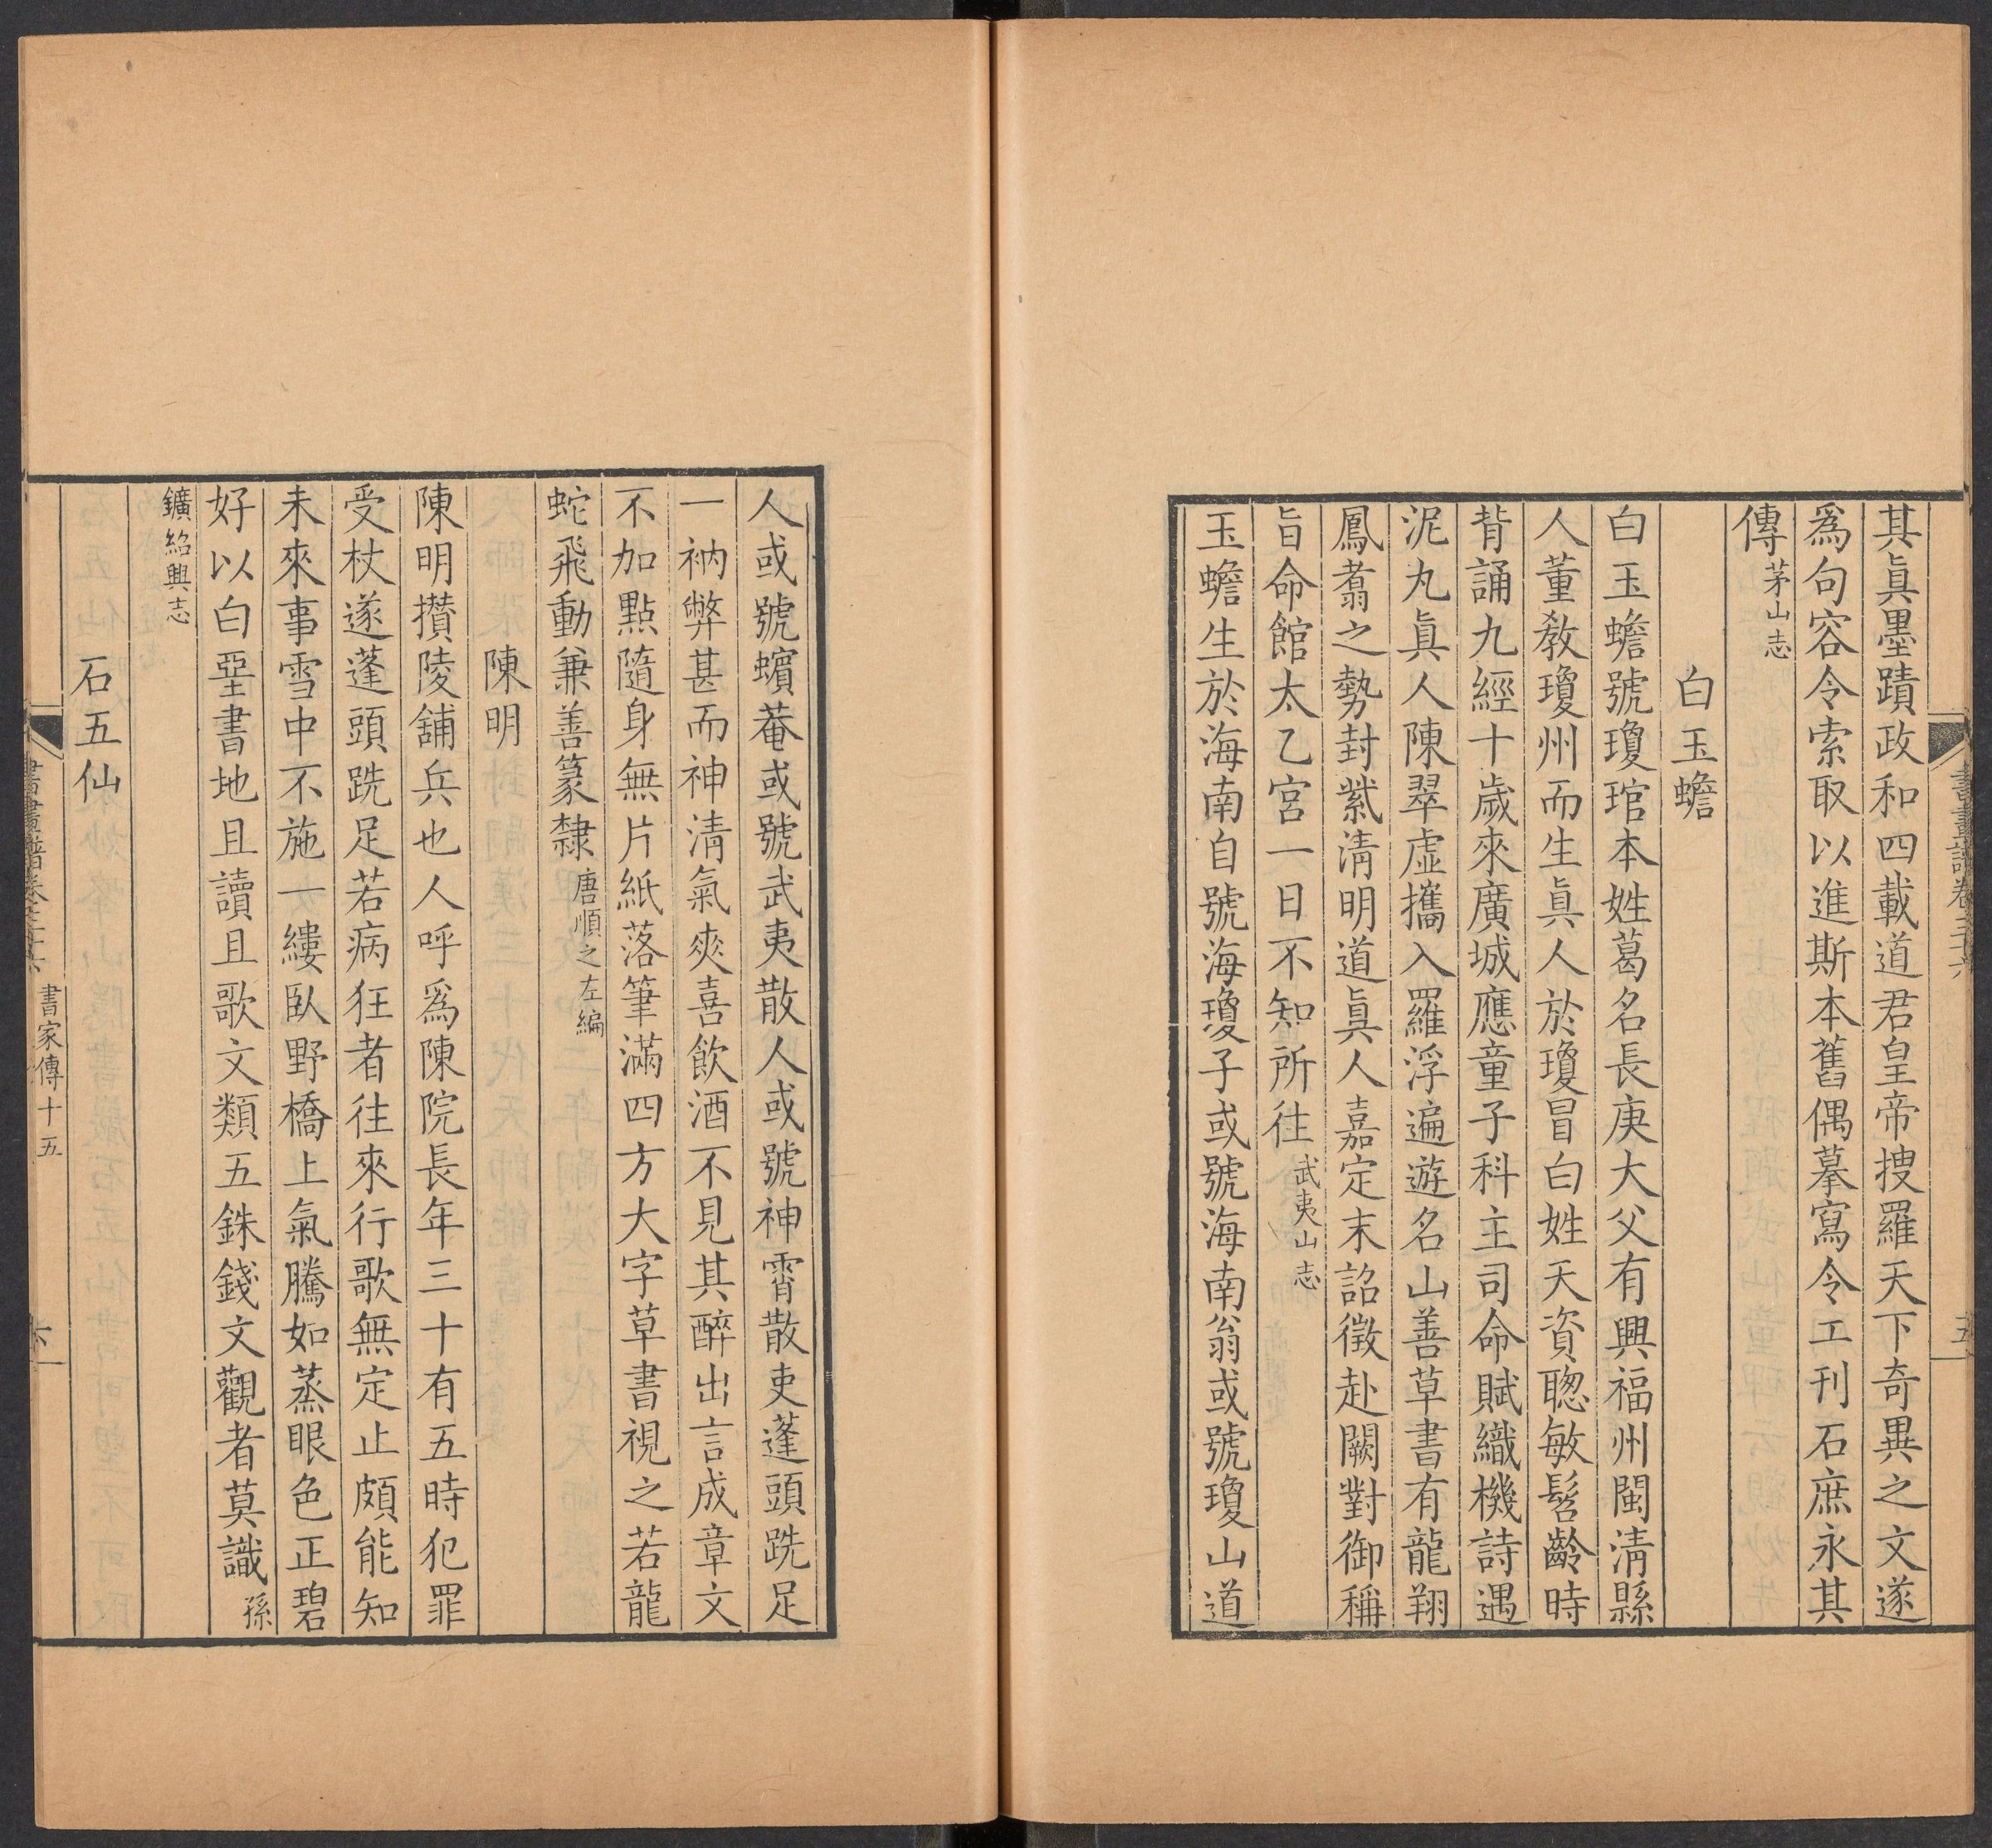 其眞墨蹟政和四載道君皇帝搜羅天下奇異之文遂
爲句容令索取以進斯本舊偶摹寫令工刊石庶永其
傳茅山志
白玉蟾
白玉蟾號瓊琯本姓葛名長庚大父有興福州閩淸縣
人董敎瓊州而生眞人於瓊冒白姓天資聰敏髫齡時
背誦九經十歲來廣城應童子科主司命賦織機詩遇
泥丸眞人陳翠虛攜入羅浮遍遊名山善草書有龍翔
鳳翥之勢封紫淸明道眞人嘉定末詔徵赴闕對御稱
旨命館太乙宮一日不知所往武夷山志
玉蟾生於海南自號海瓊子或號海南翁或號瓊山道
人或號蠙菴或號武夷散人或號神霄散吏蓬頭跣足
一衲弊甚而神淸氣爽喜飮酒不見其醉出言成章文
不加點隨身無片紙落筆滿四方大字草書視之若龍
蛇飛動兼善篆隸唐順之左編
陳明
陳明攢陵鋪兵也人呼爲陳院長年三十有五時犯罪
受杖遂蓬頭跣足若病狂者往來行歌無定止頗能知
未來事雪中不施一縷臥野橋上氣騰如蒸眼色正碧
好以白堊書地且讀且歌文類五銖錢文觀者莫識孫
鑛紹興志
石五仙
書家傳十五
六